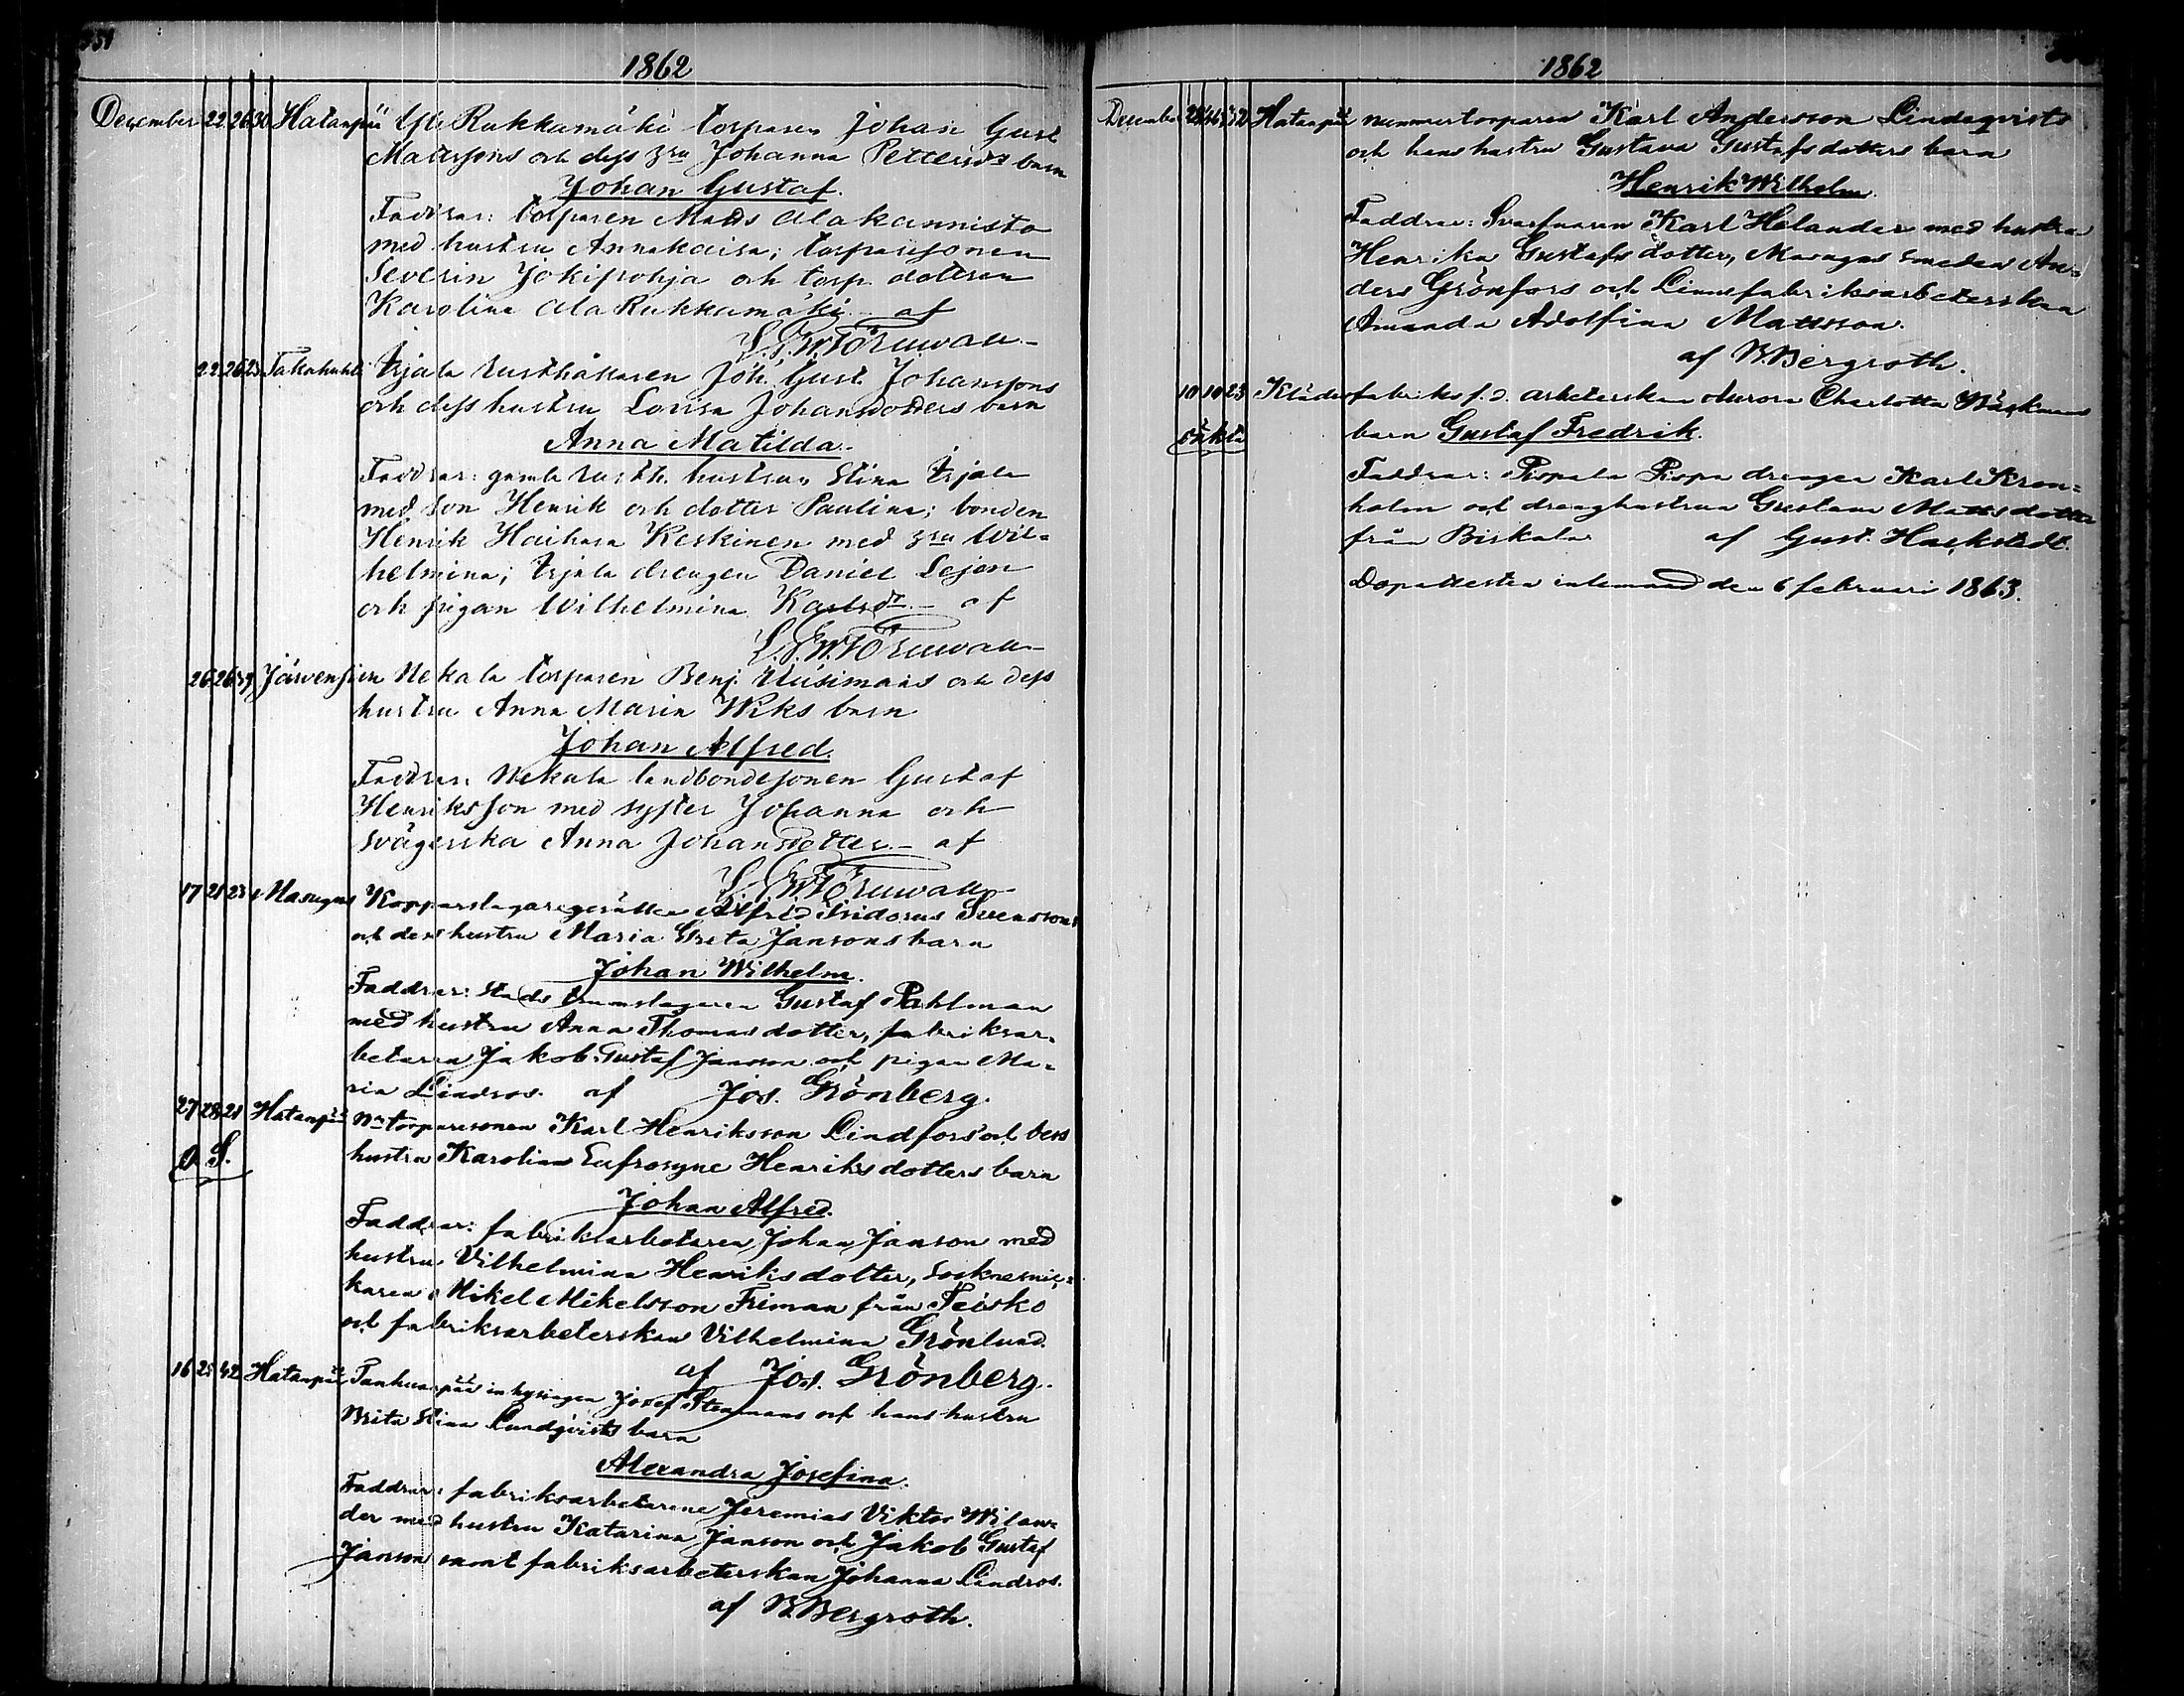 1862
December 22 26 30 Hatanpää Yli Rukkamäki torparen Johan Gust
Mattssons och dess hru Johanna Pettersdrs barn
Johan Gustaf.
Faddrar: torparen Matts Alakannisto
med hustru Annakaisa; torparesonen
Severin Jokipohja och torp. dottren
Karolina Ala Rukkamäki af
22 26 23 Takahuhti Irjala rusthållaren Joh. Gust. Johanssons
och dess hustru Lovisa Johansdotters barn
Anna Matilda.
Faddrar: gamla rusth. hustrun Stina Irjala
med son Henrik och dotter Paulina; bonden
Henrik Haihara Keskinen med hru Wil=
helmina; Irjala drengen Daniel Lejon
och pigan Wilhelmina Karlsdr. af
26 26 39 Järvensivu Nekala torparen Benj. Uusimaas och dess
hustru Anna Maria Wiks barn
Johan Alfred.
Faddrar: Nekala landbondesonen Gustaf
Henriksson med syster Johanna och
svägerska Anna Johansdotter. af
17 21 23 Masugns Kopparslagaregesällen Alfred Isidorus Svenssons
och dess hustru Maria Greta Jansons barn
Johan Wilhelm.
Faddrar: Stads trumslagaren Gustaf Pahlman
med hustru Anna Thomasdotter, fabriksar=
betaren Jakob Gustaf Janson och pigan Ma=
ria Lindros. af Jos. Grönberg.
27 28 21 Hatanpää Nr torparesonen Karl Henriksson Lindfors och dess
O. S. hustru Karolina Eufrosyne Henriksdotters barn
Johan Alfred.
Faddrar: fabriksarbetaren Johan Janson med
hustru Vilhelmina Henriksdotter, Socknesnic=
karen Mikel Mikelsson Friman från Teisko
och fabriksarbeterskan Vilhelmina Grönlund.
af Jos. Grönberg.
16 25 42 Hatanpää Tanhuanpää inhysingen Josef Stenmans och hans hustru
Brita Stina Lundqvists barn
Alexandra Josefina.
Faddrar: fabriksarbetarene Jeremias Viktor Wilan=
der med hustru Katarina Janson och Jakob Gustaf
Janson samt fabriksarbeterskan Johanna Lindros.
af B. Bergroth.
1862
December Hatanpää nummertorparen Karl Andersson Lindeqvists
och hans hustru Gustava Gustafsdotters barn
Henrik Wilhelm.
Faddrar: Svarfvaren Karl Helander med hustru
Henrika Gustafsdotter, Masugns smeden An=
ders Grönfors och Linnefabriksarbeterskan
Amanda Adolfina Mattsson.
af B. Bergroth.
10 10 23 Klädesfabriks f.d. arbeterskan Aurora Charlotta
oäkta barn Gustaf Fredrik.
Faddrar: Pispala Pispa drengen Karl Kron=
holm och drenghustrun Gustava Mattsdotter
från Birkala af Gust. Hackstedt.
Dopattesten inlemnad den 6 februari 1863.